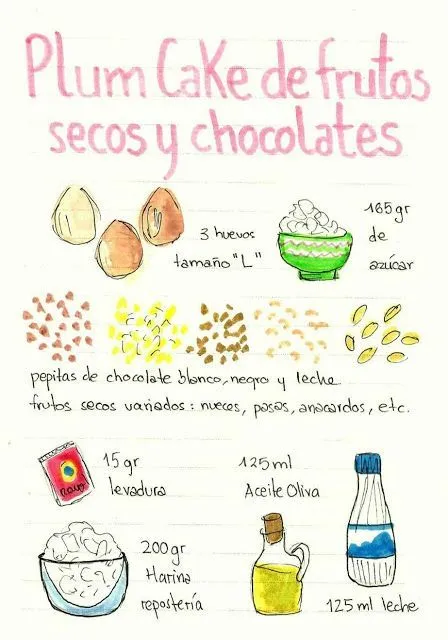 Plum Cake de frutos
secos y chocolates
3 huevos
tamaño "L"
165gr
de
azúcar
pepitas de chocolate blanco, negro y leche
frutos secos variados: nueces, pasas, anacardos, etc.
15 gr
levadura
125 ml
Aceite Oliva
200gr
Harina
repostería
125 ml leche